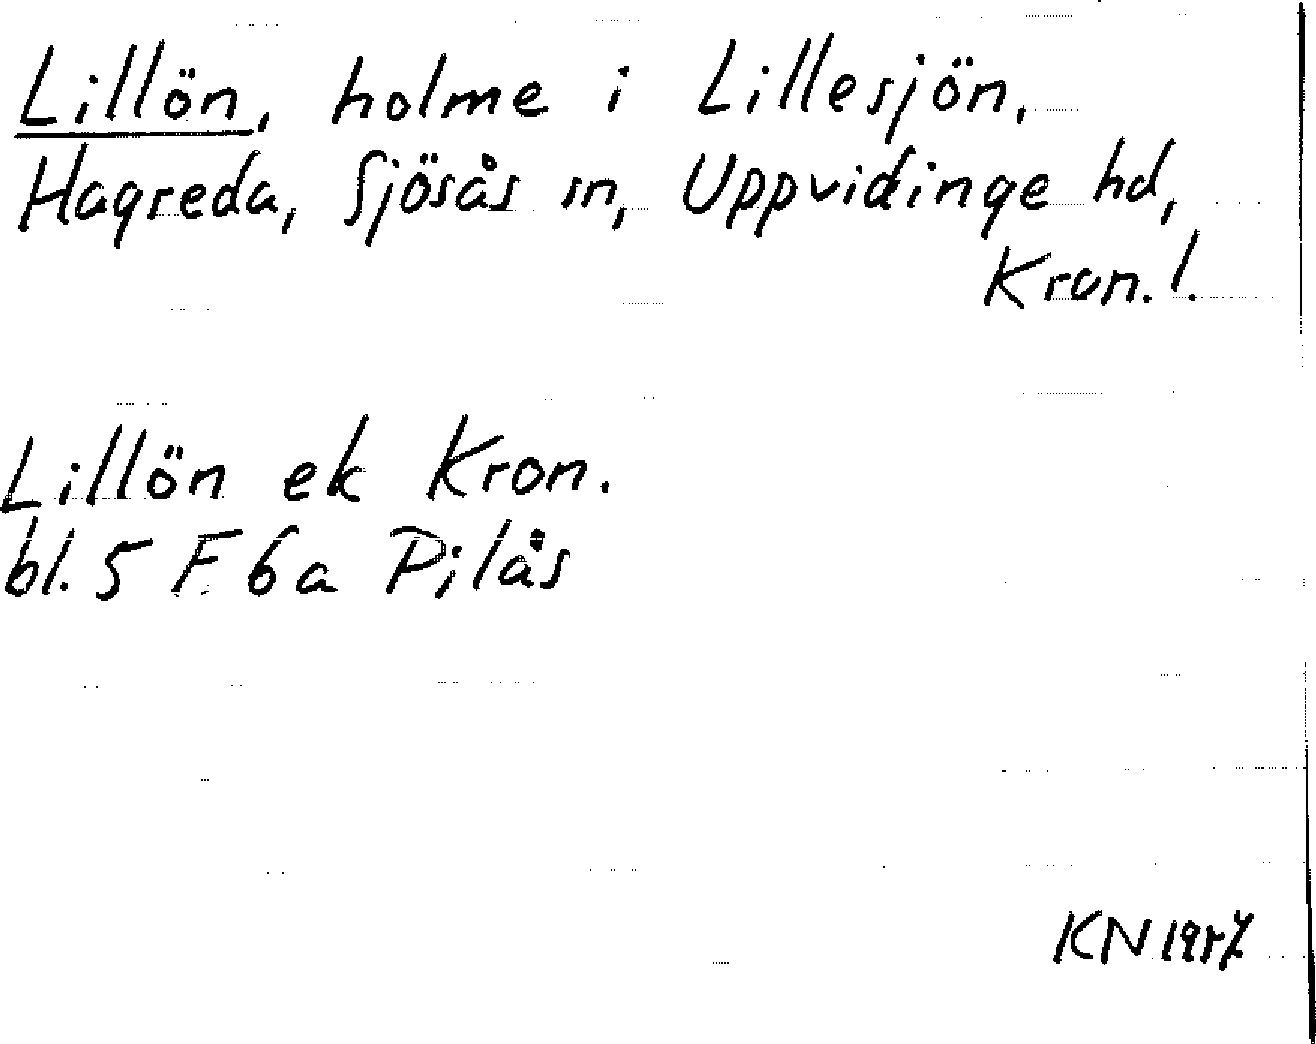 Lillön, holme i Lillesjön,
Hagreda, Sjösås sn, Uppvidinge hd,
Kron. l.
Lillön ek Kron.
bl. 5 F 6a Pilås
KN 1957